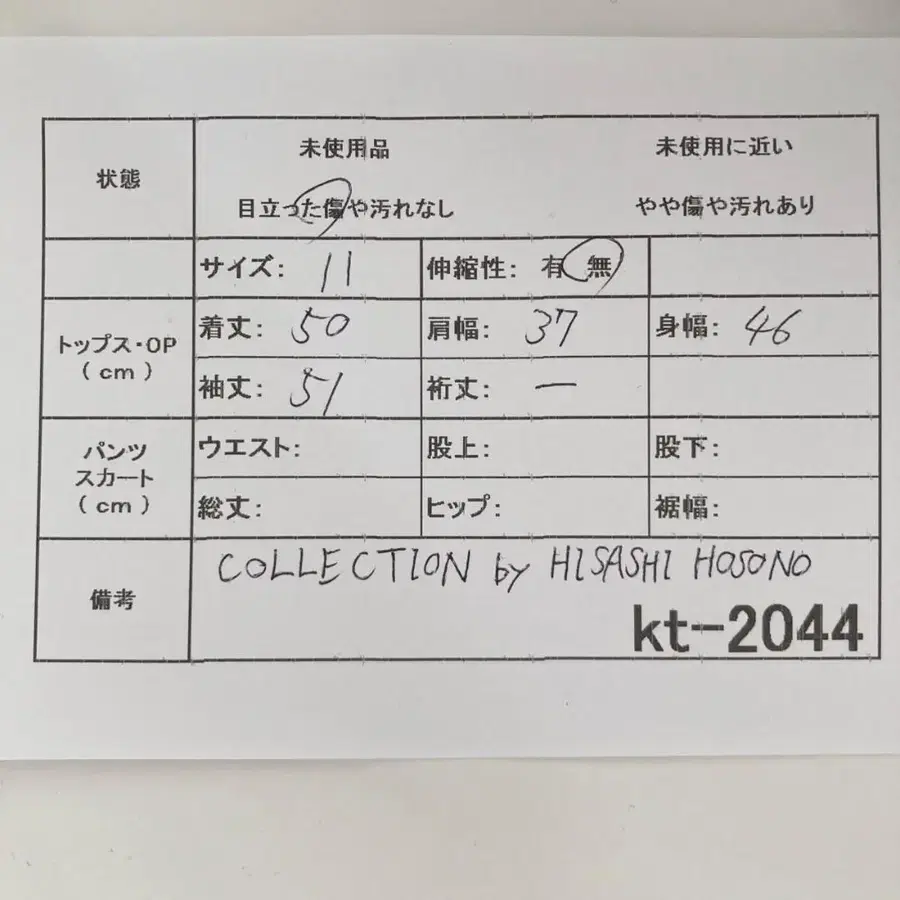 状態
未使用品 未使用に近い
目立った傷や汚れなし やや傷や汚れあり
サイズ: 11 伸縮性: 有 無
トップス・OP
(cm)
着丈: 50 肩幅: 37 身幅: 46
袖丈: 51 裄丈: ー
パンツ
スカート
(cm)
ウエスト: 股上: 股下:
総丈: ヒップ: 裾幅:
備考
COLLECTION by HISASHI HOSONO
kt-2044